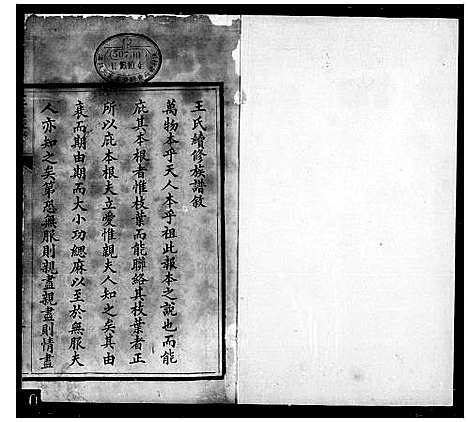 王氏續修族譜敘
萬物本乎天人本乎祖此報本之說也而能
庇其本根者惟枝葉而能聯絡其枝葉者正
所以庇本根夫立愛惟親夫人知之矣其由
衰而期由期而大小功緦麻以至於無服夫
人亦知之矣第恐無服則親盡親盡則情盡